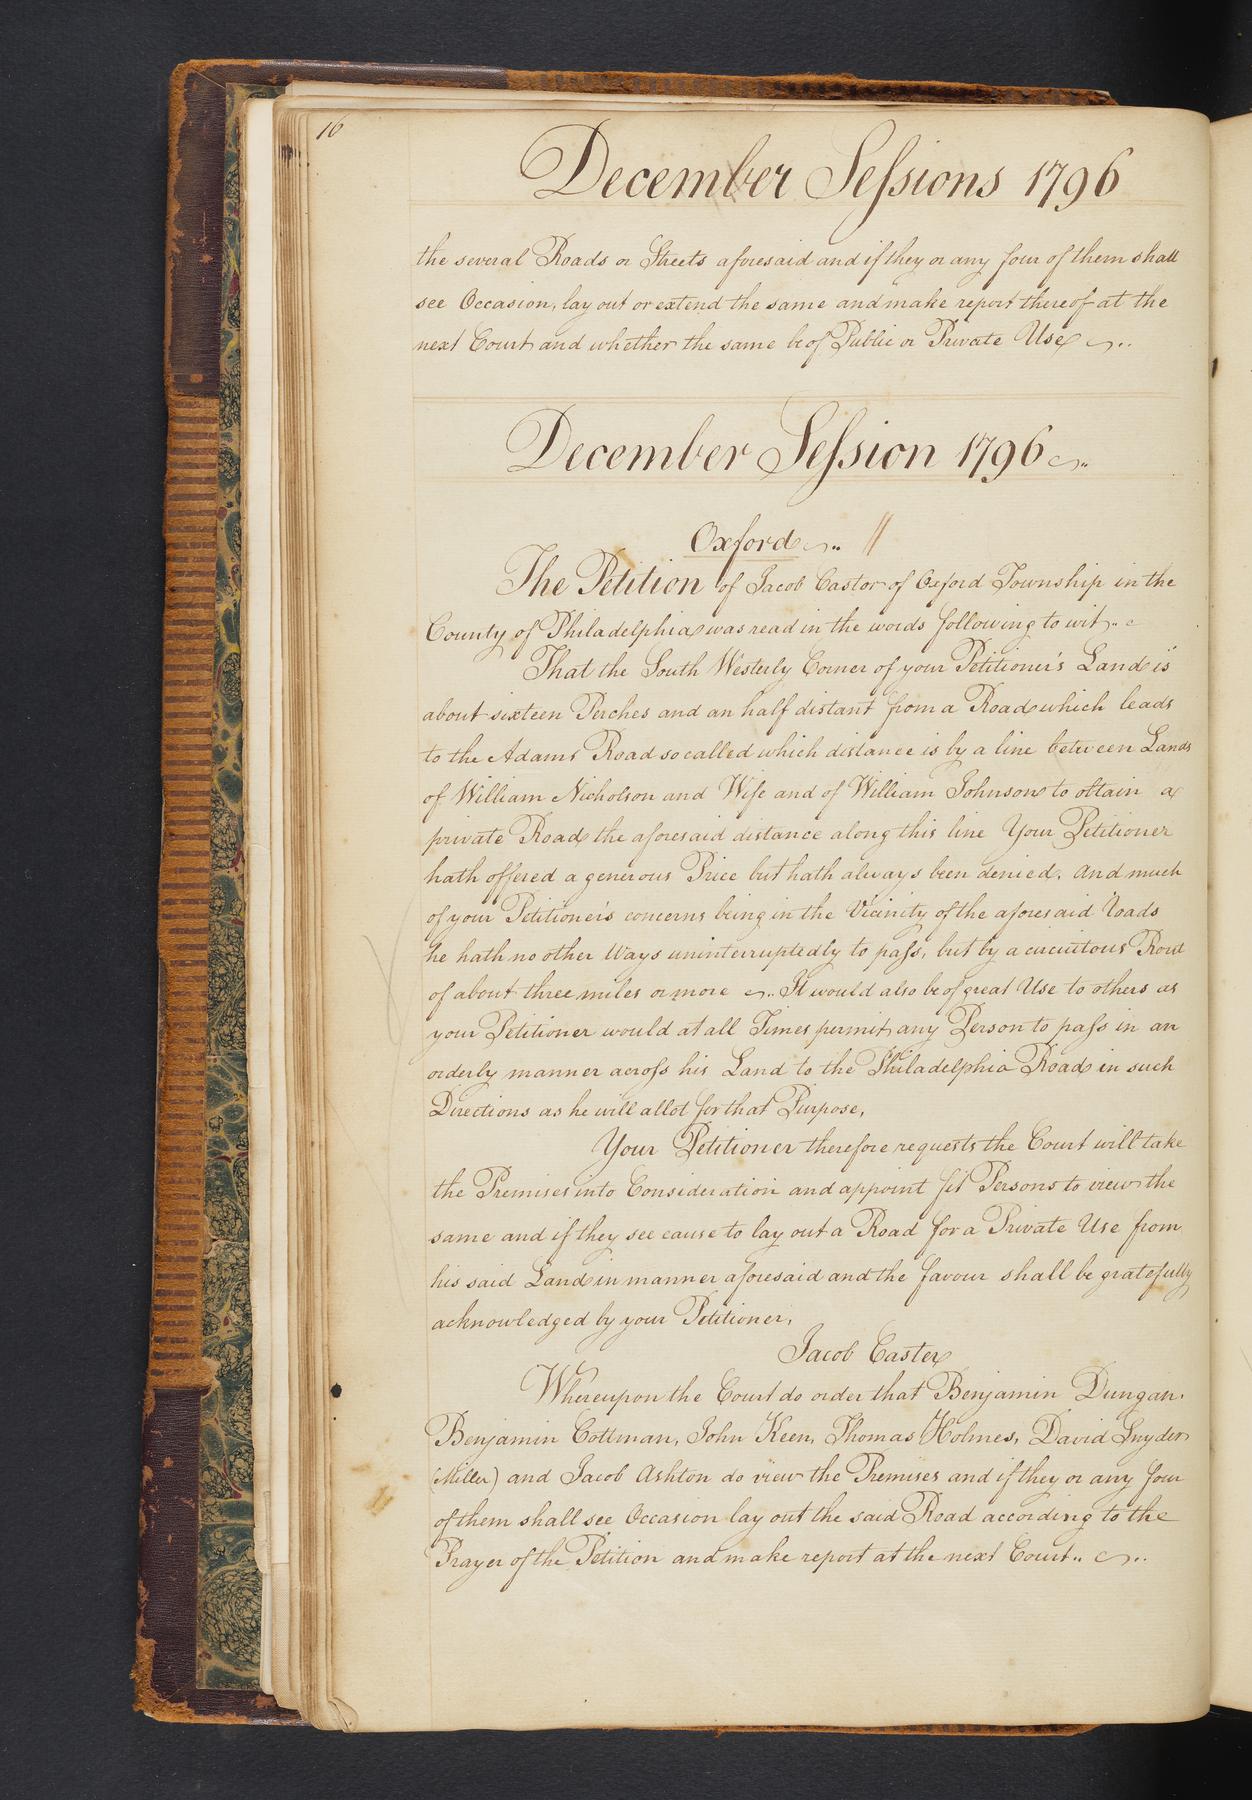 16
December Sessions 1796
the several Roads or Streets aforesaid and if they or any four of them shall
see Occasion, lay out or extend the same and make report thereof at the
next Court and whether the same be of Public or Private Use
December Session 1796
Oxford
The Petition of Jacob Castor of Oxford Township in the
County of Philadelphia was read in the words following to wit..
That the South Westerly Corner of your Petitioner's Land is
about sixteen Perches and an half distant from a Road which leads
to the Adams Road so called which distance is by a line between Lands
of William Nicholson and Wife and of William Johnson to obtain a
private Road the aforesaid distance along this line Your Petitioner
hath offered a generous Price but hath always been denied. And much
of your Petitioner's concerns being in the Vicinity of the aforesaid Roads
he hath no other Ways uninterruptedly to pass, but by a circuitous Rout
of about three miles or more .. It would also be of great Use to others as
your Petitioner would at all Times permit any Person to pass in an
orderly manner across his Land to the Philadelphia Road in such
Directions as he will allot for that Purpose,
Your Petitioner therefore requests the Court will take
the Premises into Consideration and appoint fit Persons to view the
same and if they see cause to lay out a Road for a Private Use from
his said Land in manner aforesaid and the favour shall be gratefully
acknowledged by your Petitioner,
Jacob Caster
Whereupon the Court do order that Benjamin Dungan.
Benjamin Cottman, John Keen, Thomas Holmes, David Snyder
(Miller) and Jacob Ashton do view the Premises and if they or any four
of them shall see Occasion lay out the said Road according to the
Prayer of the Petition and make report at the next Court..